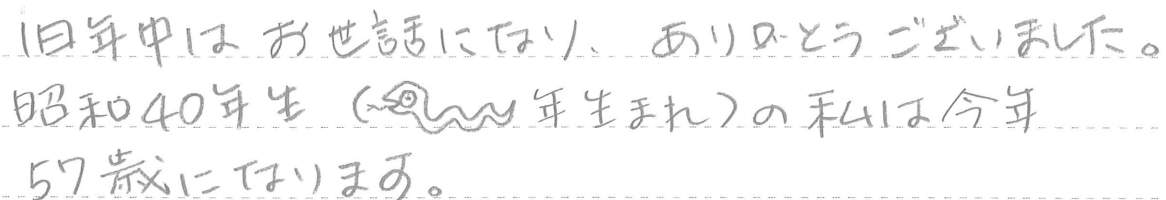 旧年中はお世話になり、ありがとうございました。
昭和40年生(年生まれ)の私は今年
57歳になります。